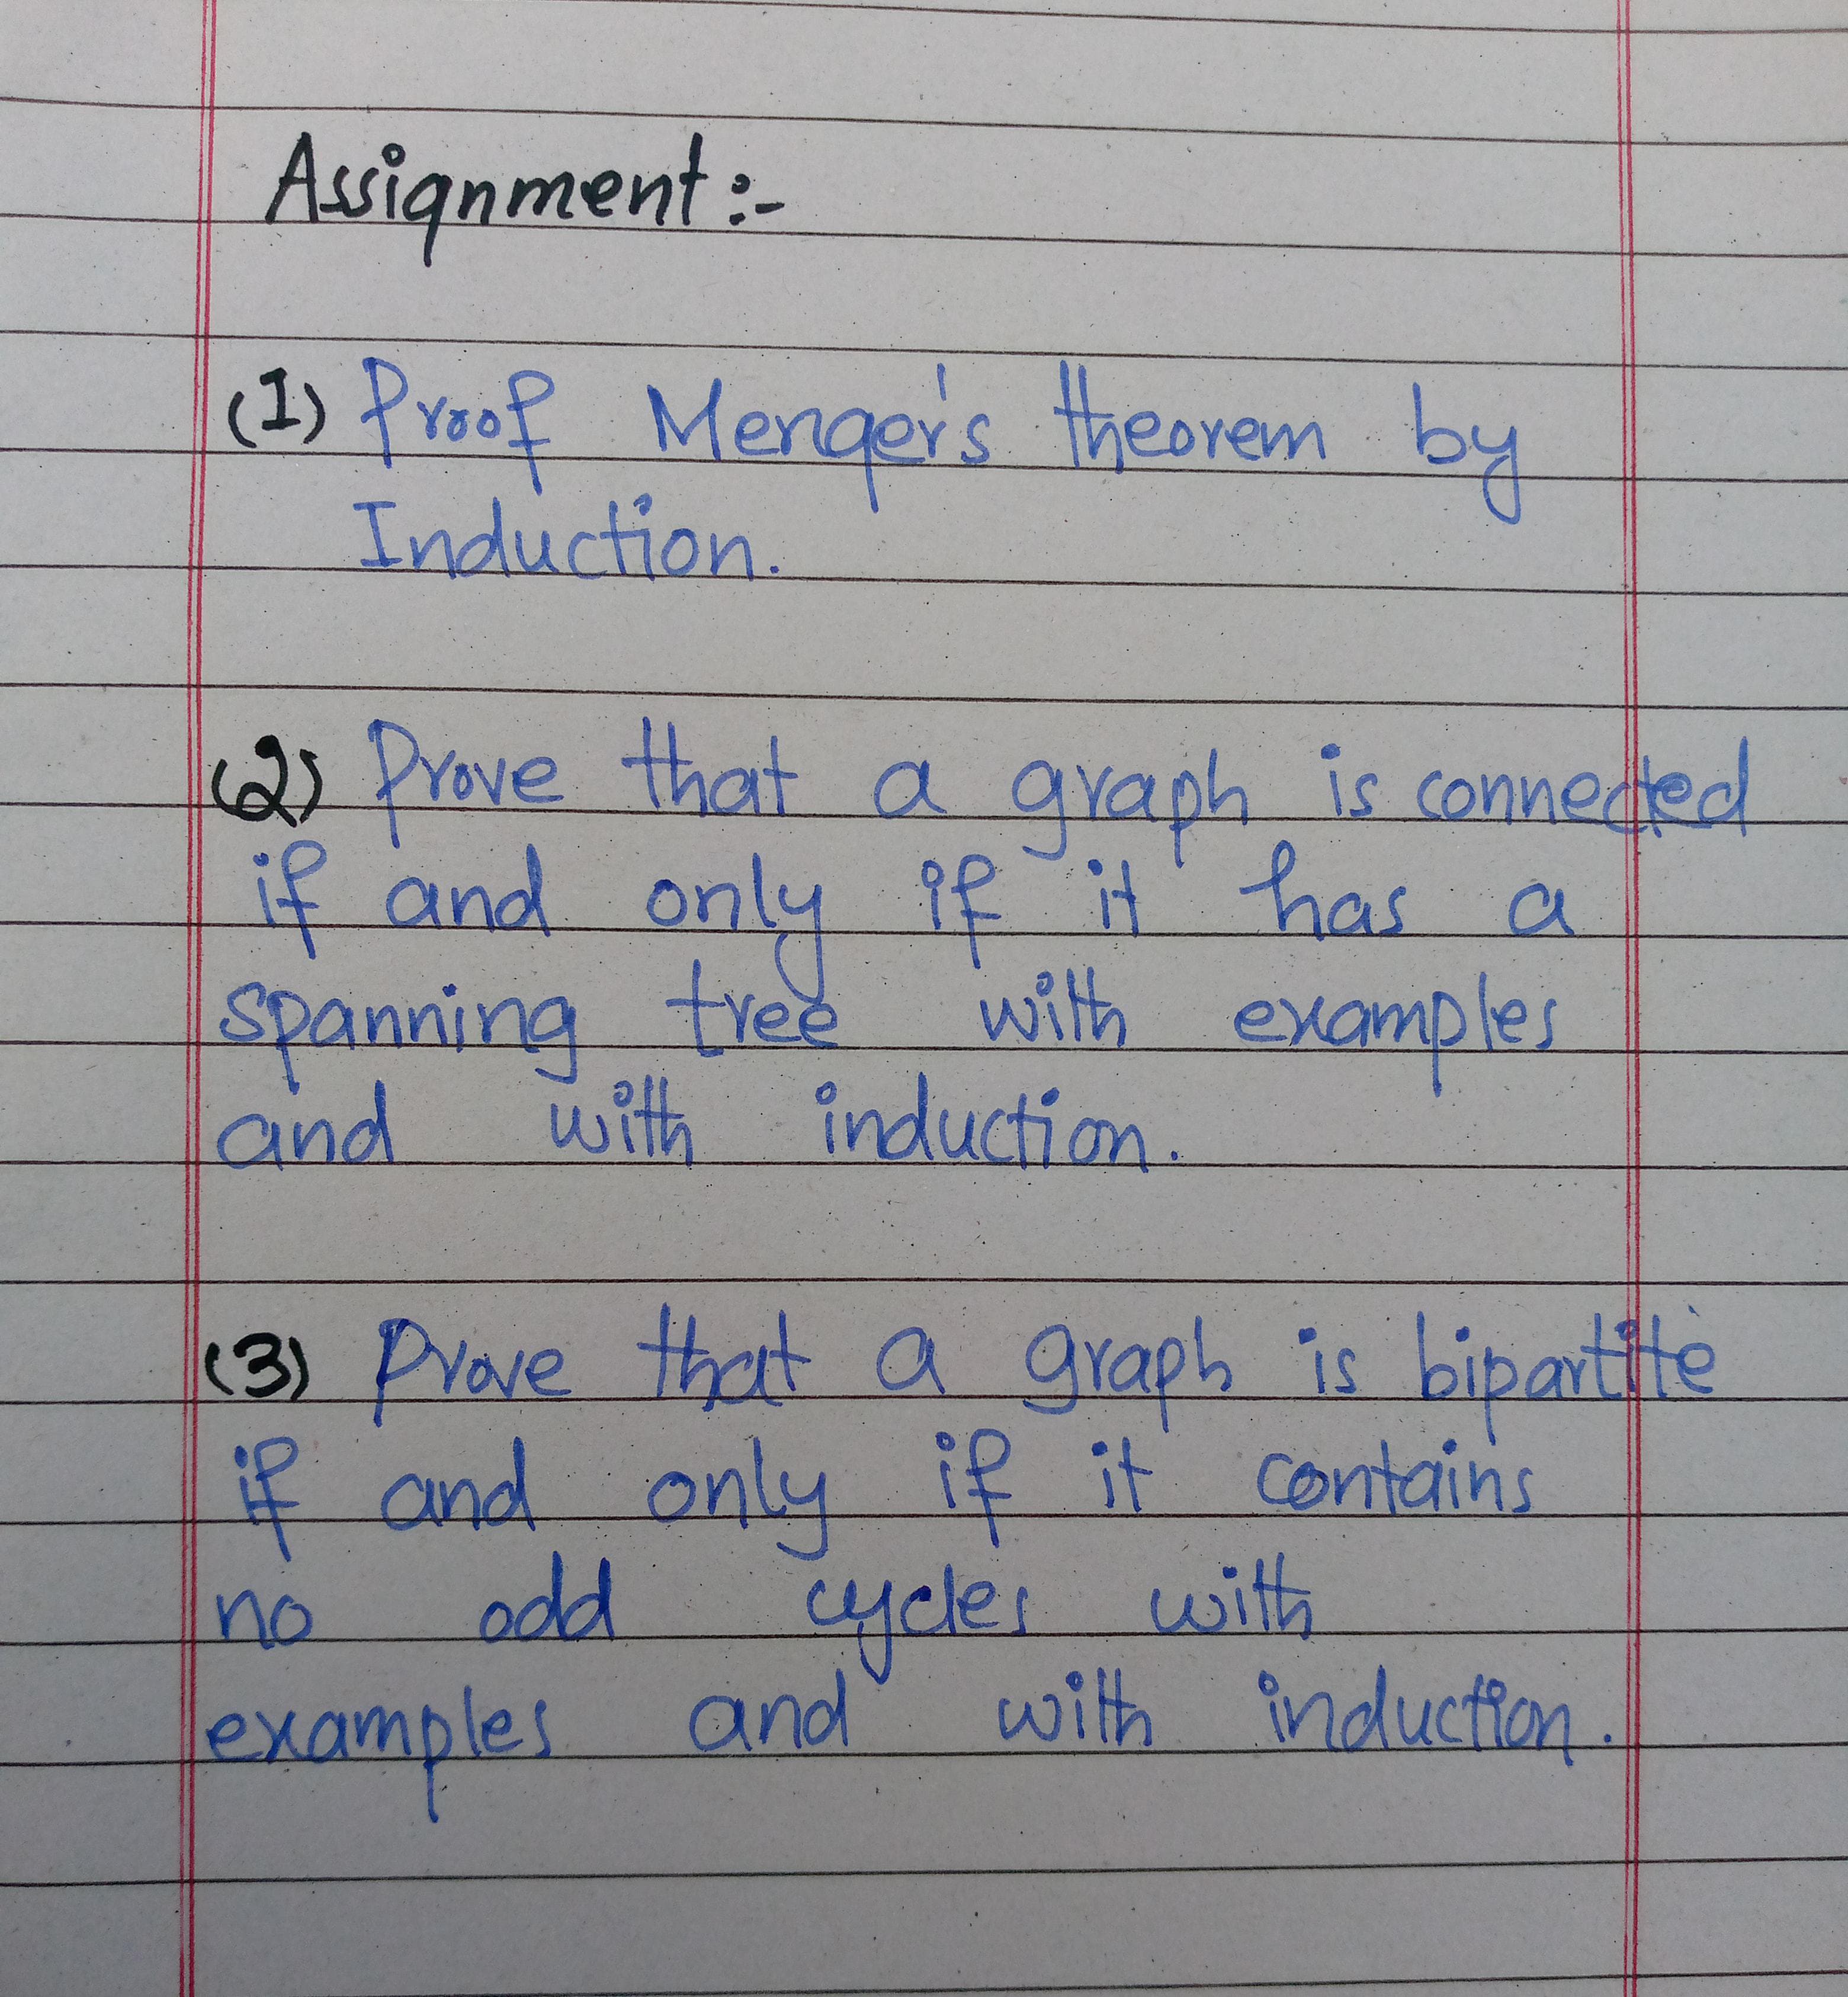 Assignment :-
(1) Proof Menger's theorem by
Induction.
(2) Prove that a graph is connected
if and only if it has a
spanning tree with examples
and with induction.
(3) Prove that a graph is bipartite
if and only if it contains
no odd cycles with
examples and with induction.